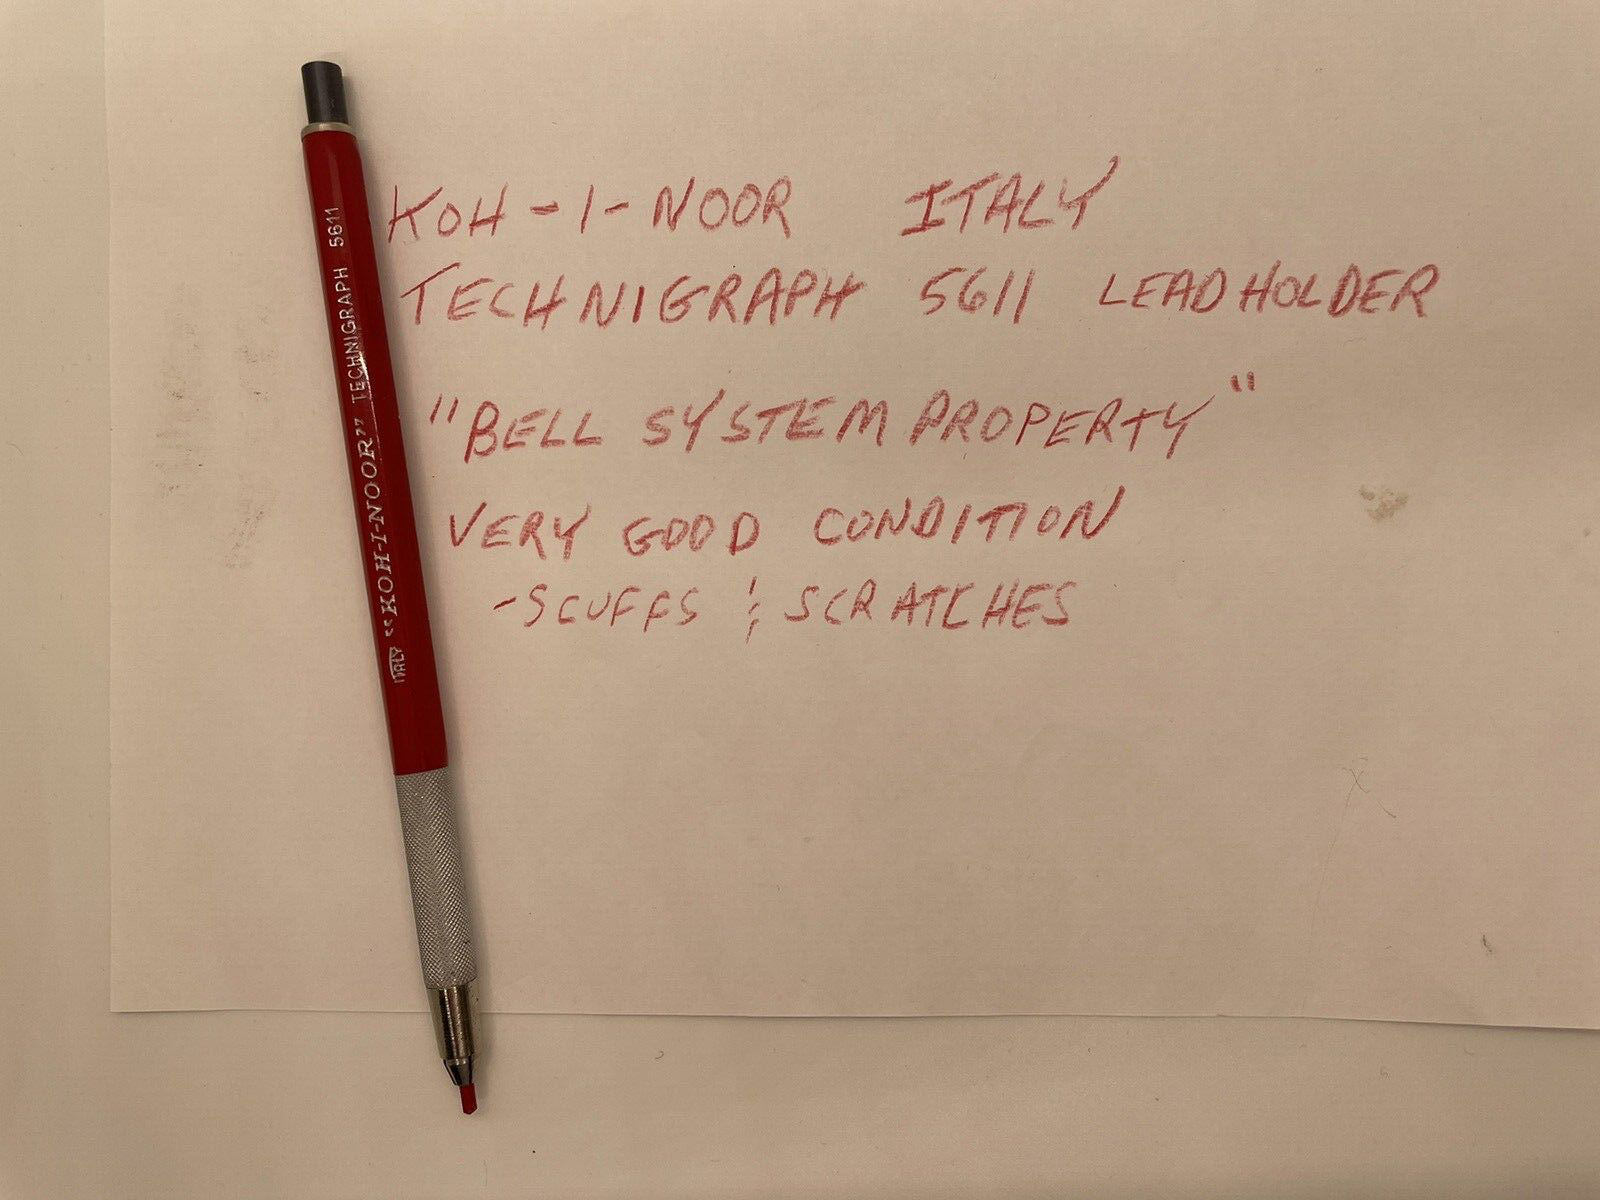 ITALY "KOH-I-NOOR" TECHNIGRAPH 5611
KOH-I-NOOR ITALY
TECHNIGRAPH 5611 LEADHOLDER
"BELL SYSTEM PROPERTY"
VERY GOOD CONDITION
-SCUFFS & SCRATCHES